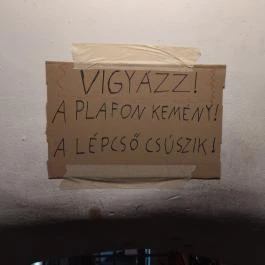 VIGYÁZZ!
A PLAFON KEMÉNY!
A LÉPCSŐ CSÚSZIK!